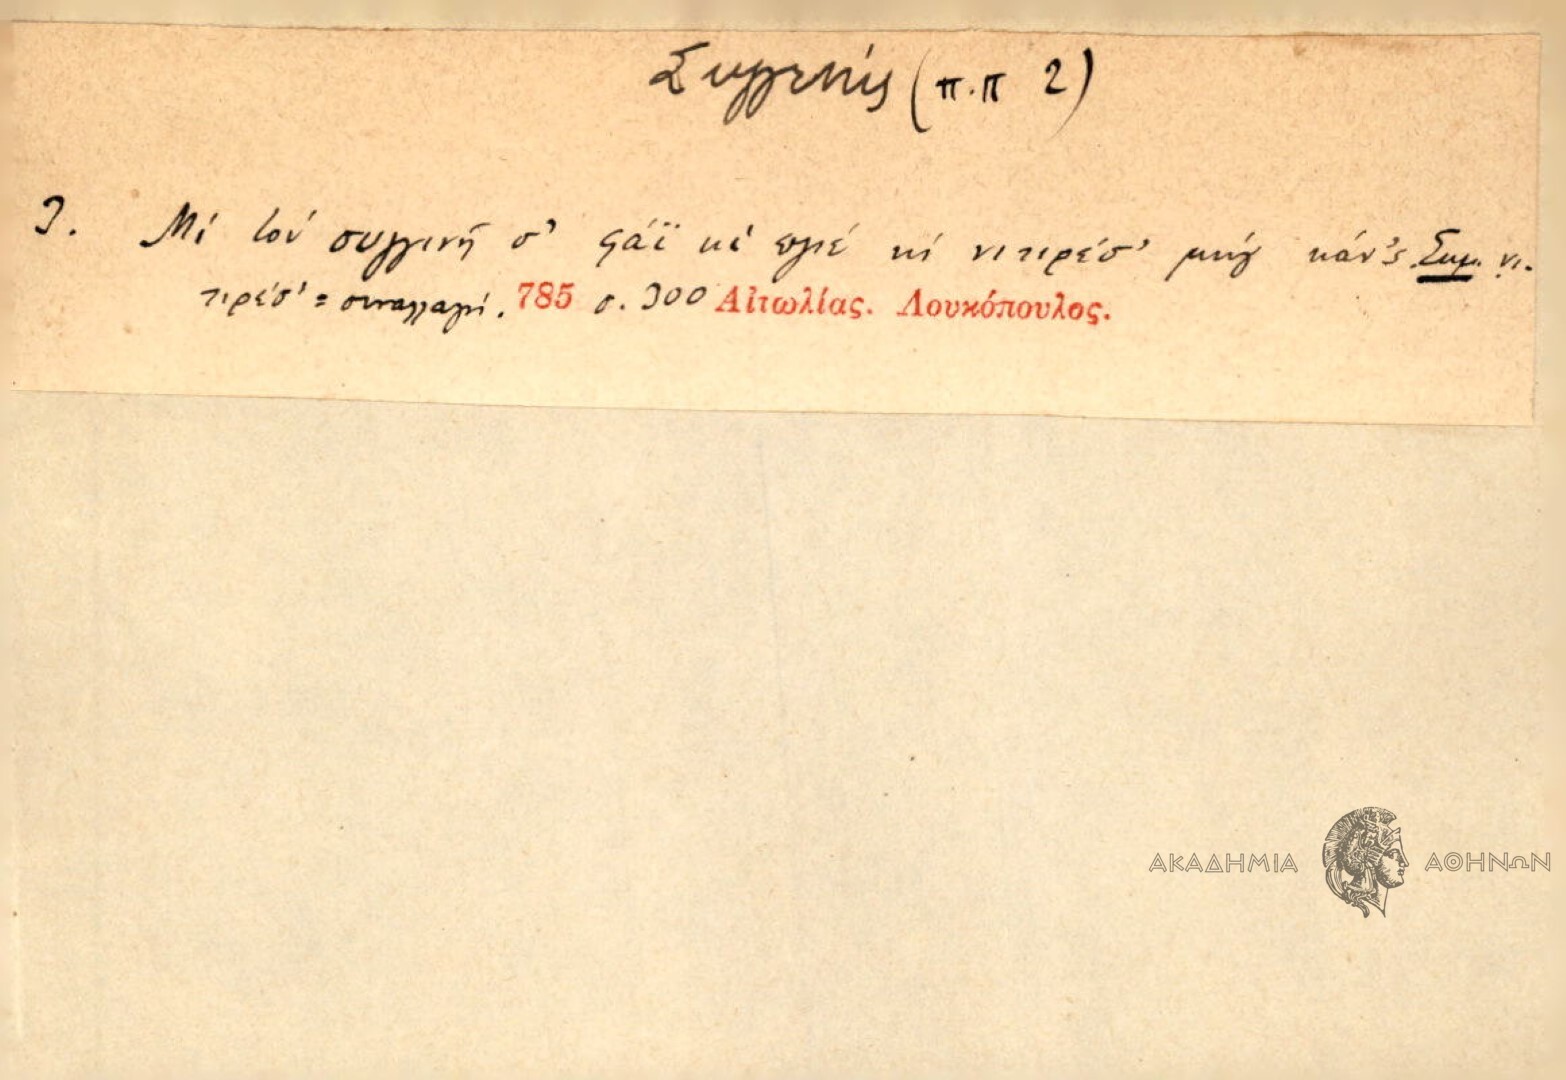 Συγγενής (π.π 2)
3. Μί τού συγγινή σ' φάϊ κὶ πχιέ κί νιτιρέσ' μήγ κάν'ς Σημ. νι-
τιρέσ' = συναλλαγή. 785 σ. 300 Αἰτωλίας. Λουκόπουλος.
ΑΚΑΔΗΜΙΑ ΑΘΗΝΩΝ